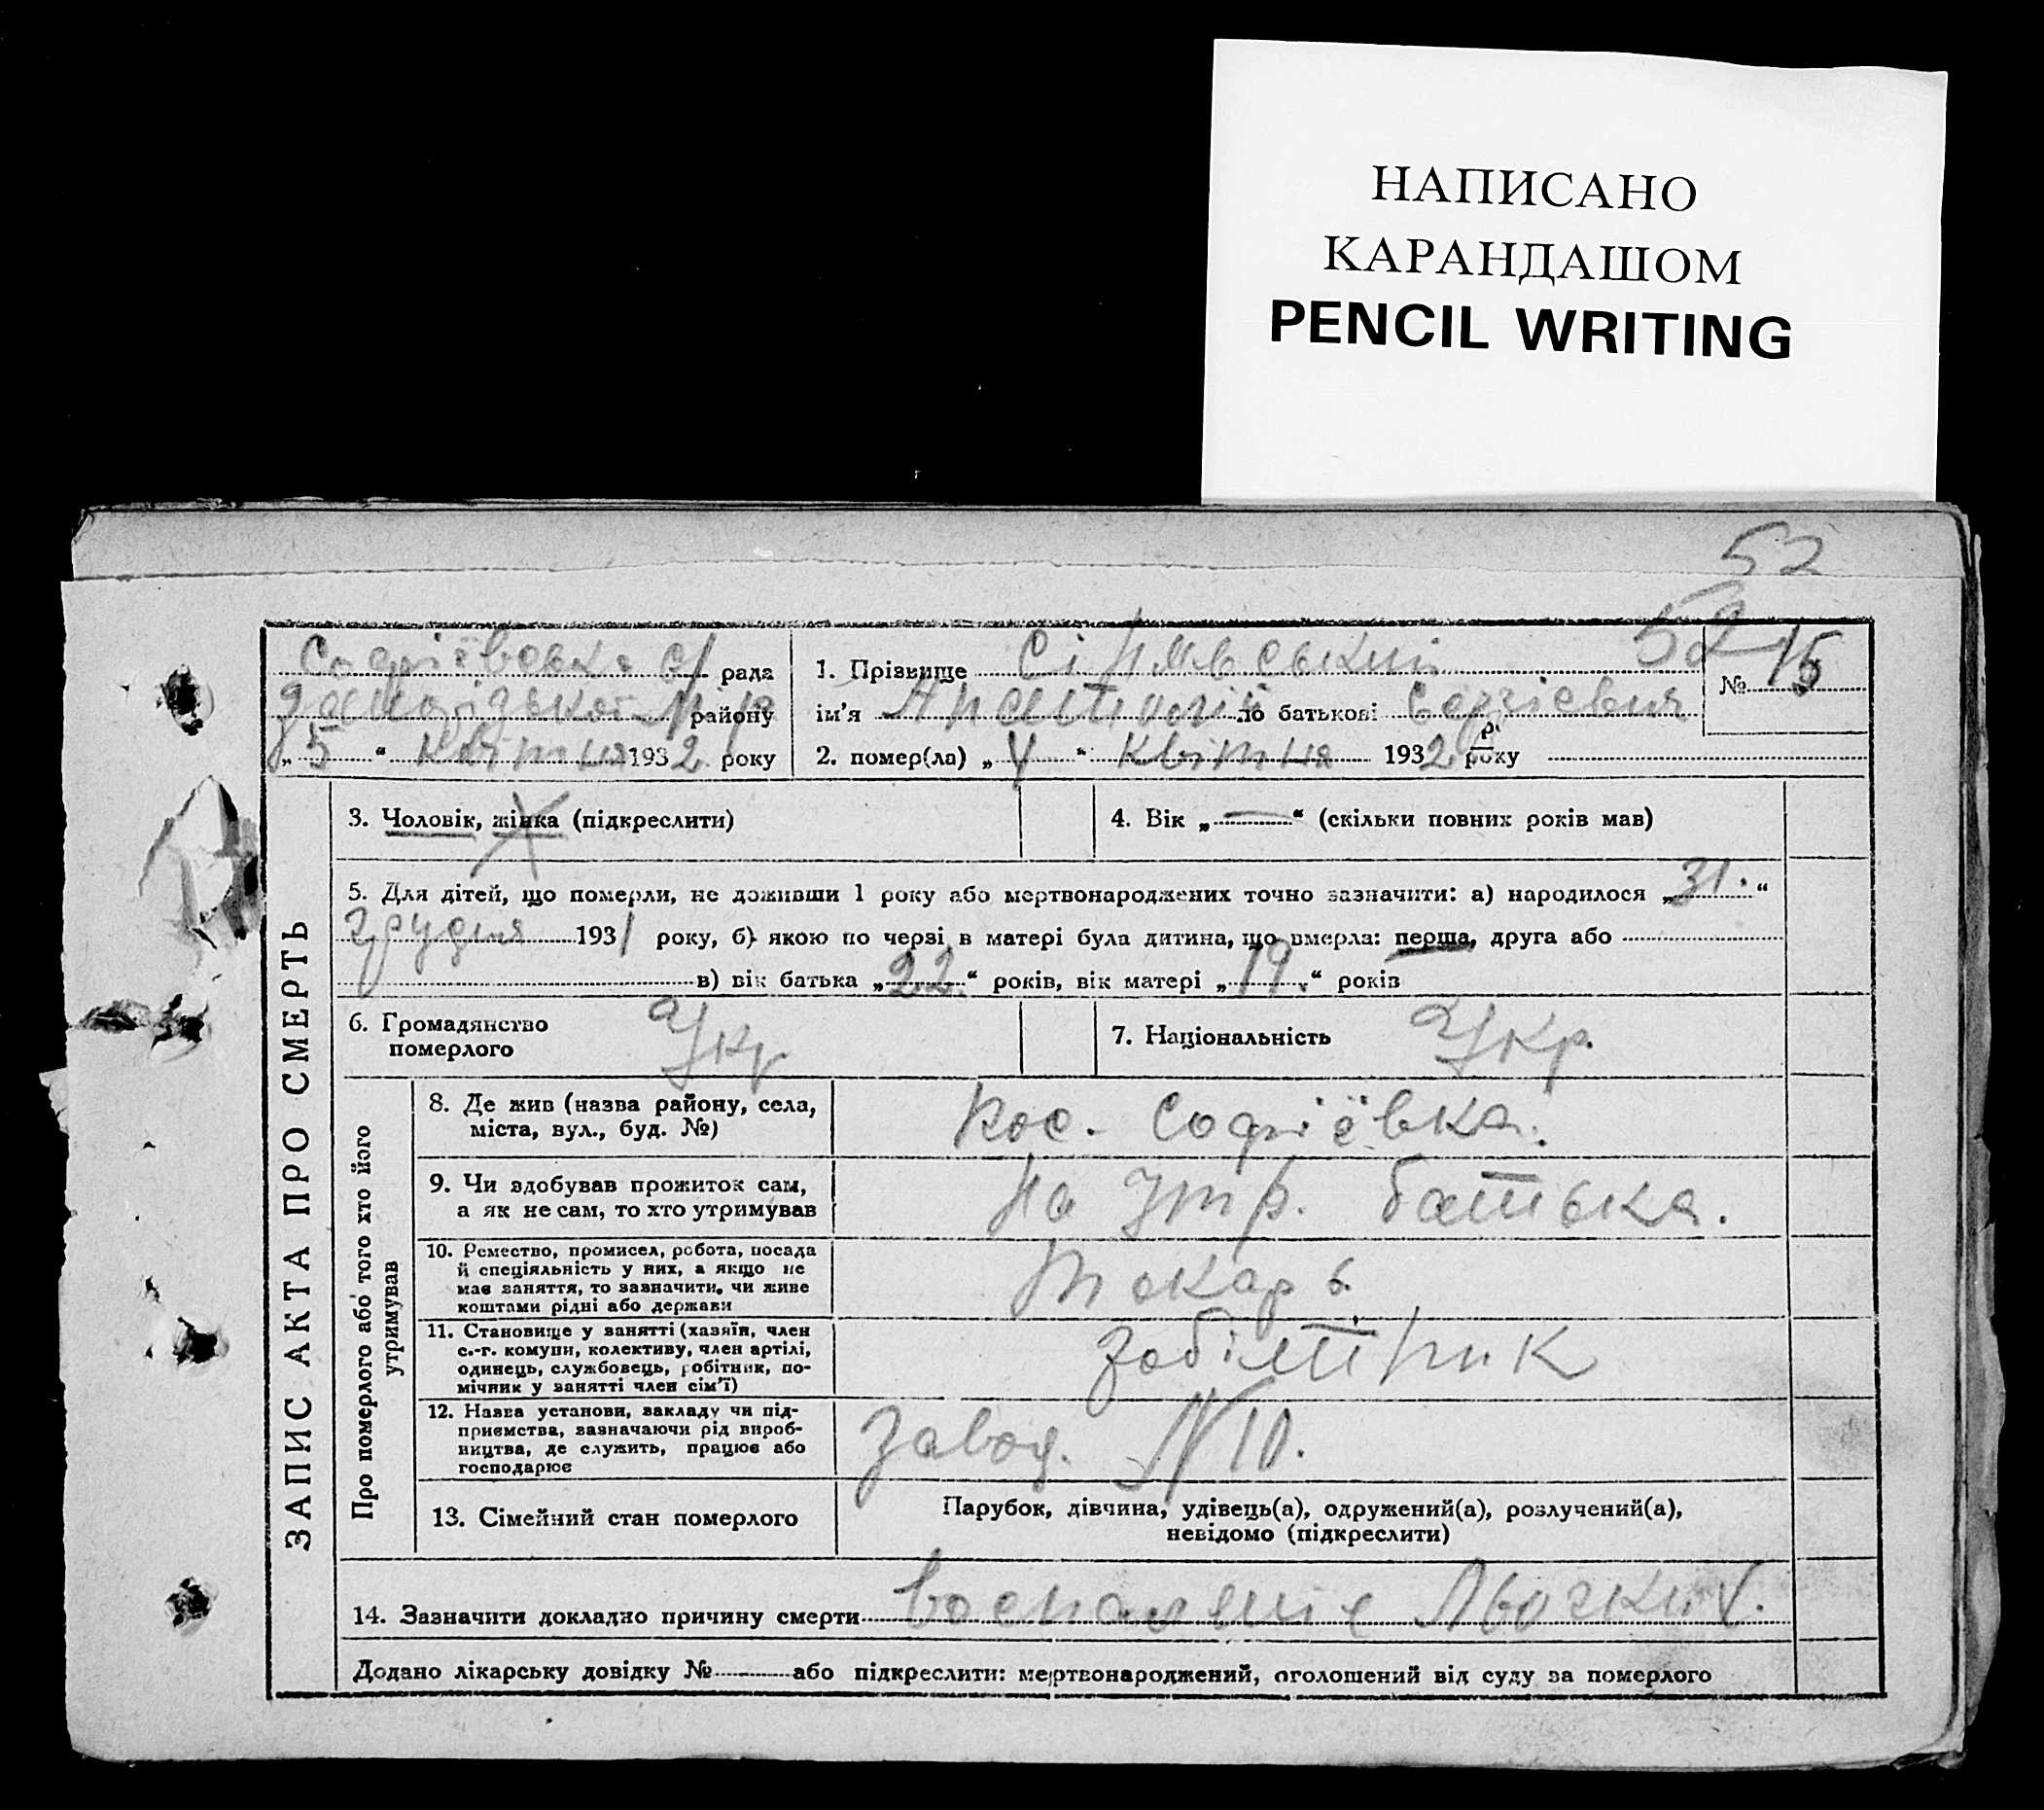 НАПИСАНО
КАРАНДАШОМ
PENCIL WRITING
52
52
Софіёвська с/ рада
району
„5“ квітня 1932 року
1. Прізвище
№ 15
ім’я по батькові Сергіевич
2. помер(ла) „4“ квітня 1932 р. року
ЗАПИС АКТА ПРО СМЕРТЬ
3. Чоловік, жінка (підкреслити)
4. Вік „—“ (скільки повних років мав)
5. Для дітей, що померли, не доживши 1 року або мертвонароджених точно зазначити: а) народилося „31.“
Грудня 1931 року, б) якою по черзі в матері була дитина, що вмерла: перша, друга або
в) вік батька „22.“ років, вік матері „19.“ років
6. Громадянство
померлого
Укр
7. Національність Укр.
Про померлого або того хто його
утримував
8. Де жив (назва району, села,
міста, вул., буд. №)
пос. Софіёвка.
9. Чи здобував прожиток сам,
а як не сам, то хто утримував
На утр. батька.
10. Ремество, промисел, робота, посада
й спеціяльність у них, а якщо не
має заняття, то зазначити, чи живе
коштами рідні або держави
Токарь.
11. Становище у занятті (хазяїн, член
с.-г. комуни, колективу, член артілі,
одинець, службовець, робітник, по-
мічник у занятті член сім’ї)
12. Назва установи, закладу чи під-
приємства, зазначаючи рід вироб-
ництва, де служить, працює або
господарює
Завод. N 10.
13. Сімейний стан померлого
Парубок, дівчина, удівець(а), одружений(а), розлучений(а),
невідомо (підкреслити)
14. Зазначити докладно причину смерти воспаление
Додано лікарську довідку № або підкреслити: мертвонароджений, оголошений від суду за померлого